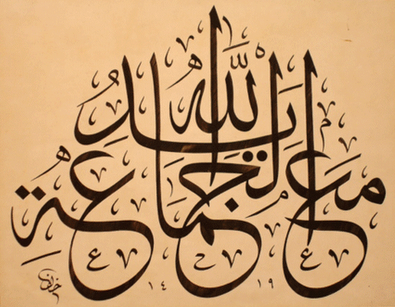 يد الله مع الجماعة
١٤١٩